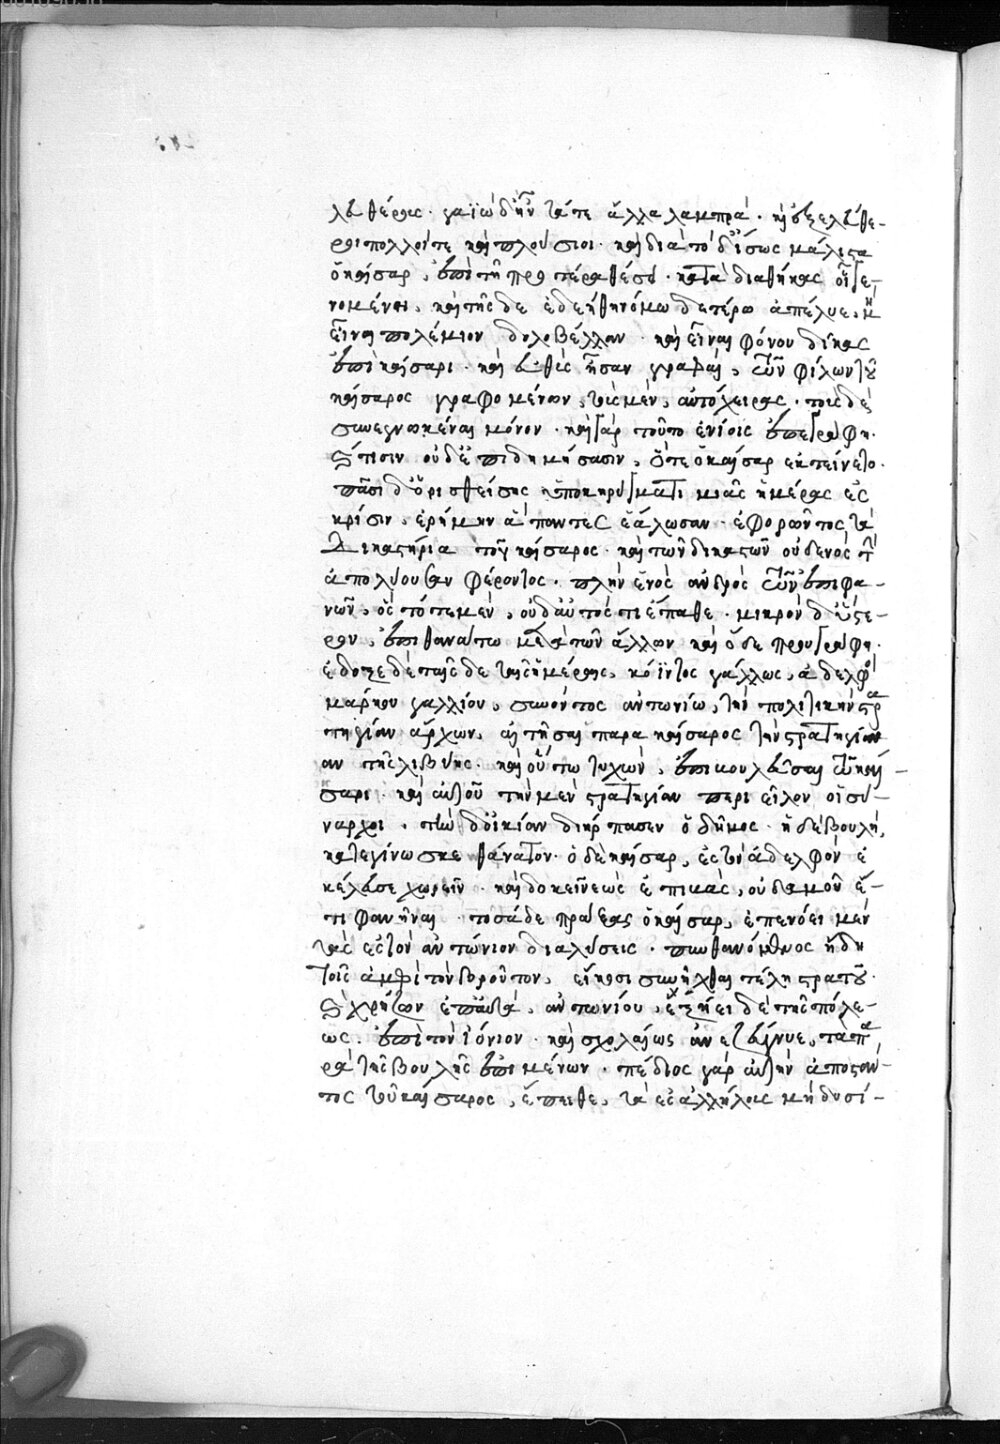 λευθέρας· γαΐῳ δ' ἦν τά τε ἄλλα λαμπρά· καὶ ἐξελεύθε-
ροι πολλοί τε καὶ πλούσιοι· καὶ διὰ τόδ' ἴσως μάλιστα
ὁ καῖσαρ, ἐπὶ τῇ προτέρα θέσει· κατὰ διαθήκας οἱ γε-
νομένῃ, καὶ τῆσδε ἐδεήθη· νόμῳ δ' ἑτέρῳ ἀπέλυε, μὴ
εἶναι πολέμιον δολοβέλλαν· καὶ εἶναι φόνου δίκας
ἐπὶ καίσαρι· καὶ εὐθὺς ἦσαν γραφαὶ, τῶν φίλων τοῦ
καίσαρος γραφομένων, τοὺς μὲν, αὐτόχειρας· τοὺς δὲ
συνεγνωκέναι μόνον· καὶ γὰρ τοῦτο ἐνίοις ἐπεγράφη·
καί τισιν οὐδ' ἐπιδημήσασιν, ὅτε ὁ καῖσαρ ἐκτείνετο·
πᾶσι δ' ὁρισθείσης ὑποκηρύγματι μιᾶς ἡμέρας ἐς
κρίσιν, ἐρήμην ἅπαντες ἑάλωσαν· ἐφορῶντος τὰ
δικαστήρια τοῦ καίσαρος· καὶ τῶν δικαστῶν οὐδενὸς τὴν
ἀπολύουσαν φέροντος· πλὴν ἑνὸς ἀνδρὸς τῶν ἐπιφα-
νῶν, ὃς τότε μὲν, οὐδ' αὐτός τι ἔπαθε· μικρὸν δ' ὕστε-
ρον, ἐπὶ θανάτῳ μετὰ τῶν ἄλλων καὶ ὅδε προυγράφη·
ἔδοξε δὲ ταῖσδε ταῖς ἡμέραις, κόϊντος γάλλιος, ἀδελφὸς
μάρκου γαλλίου, συνόντος ἀντωνίῳ, τὴν πολιτικὴν στρα
τηγίαν ἄρχων, αἰτῆσαι παρὰ καίσαρος τὴν στρατηγίαν
αν τῆς λιβύης· καὶ οὕτω τυχὼν, ἐπιβουλεῦσαι τῷ καί-
σαρι· καὶ αὐτοῦ τὴν μὲν στρατηγίαν περιεῖλον οἱ συ-
ναρχοι· τὴν δ' οἰκίαν διήρπασεν ὁ δῆμος· ἡ δὲ βουλὴ,
κατεγίνωσκε θάνατον· ὁ δὲ καῖσαρ, ἐς τὸν ἀδελφὸν ἐ
κέλευσε χωρεῖν· καὶ δοκεῖ νεὼς ἐπιβὰς, οὐδαμοῦ ἔ-
τι φανῆναι· τοσάδε πράξας ὁ καῖσαρ, ἐπενόει μὲν
τὰς ἐς τὸν ἀντώνιον διαλύσεις· πυνθανόμενος ἤδη
τοῖς ἀμφὶ τὸν βροῦτον, εἴκοσι συνῆχθαι τέλη στρατοῦ·
καὶ χρῄζων ἐπ' αὐτὰ, ἀντωνίου, ἐξῄει δὲ τῆς πόλε-
ως, ἐπὶ τὸν ἰόνιον· καὶ σχολαίως ἀνεζεύγνυε, τὰ πα
ρὰ τῆς βουλῆς ἐπιμένων· πέδιος γὰρ αὐτὴν ἀποστάν-
τος τοῦ καίσαρος, ἔπειθε, τὰ ἐς ἀλλήλους μὴ δυσί-